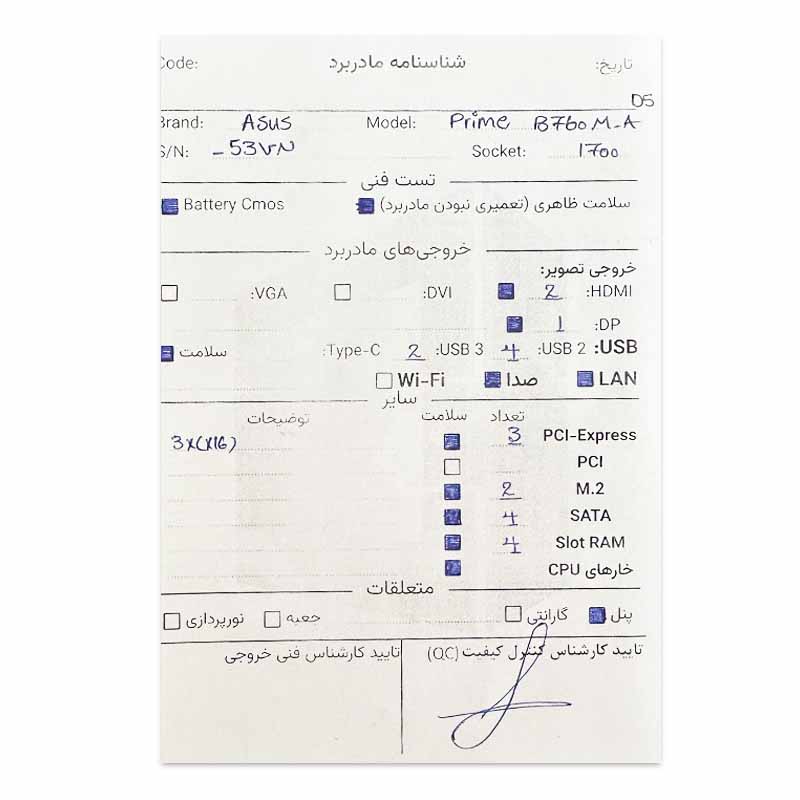 تاریخ: شناسنامه مادربرد Code:
D5
Brand: Asus Model: Prime B760M-A
S/N: -53VN Socket: 1700
تست فنی
سلامت ظاهری (تعمیری نبودن مادربرد) Battery Cmos
خروجی‌های مادربرد
خروجی تصویر:
HDMI: 2 DVI: VGA:
DP: 1
USB: USB 2: 4 USB 3: 2 Type-C: سلامت
LAN صدا Wi-Fi
سایر
تعداد سلامت توضیحات
PCI-Express 3 3x(x16)
PCI
M.2 2
SATA 4
Slot RAM 4
خارهای CPU
متعلقات
پنل گارانتی جعبه نورپردازی
تایید کارشناس کنترل کیفیت (QC) تایید کارشناس فنی خروجی